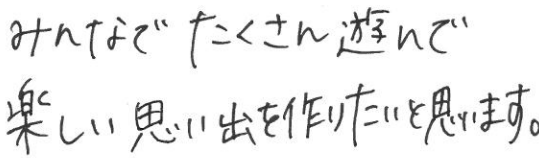 みんなで たくさん遊んで
楽しい思い出を作りたいと思います。